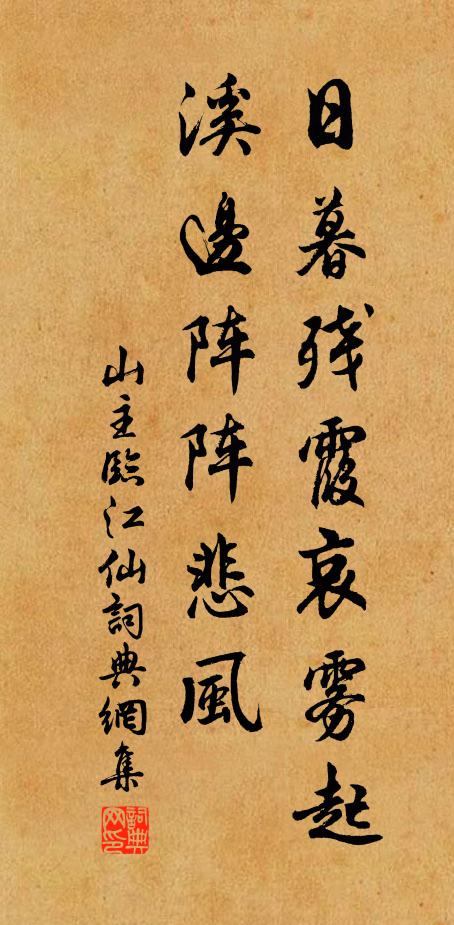 日暮残霞哀雾起
溪邊阵阵悲風
山主臨江仙詞典網集
詞典网印